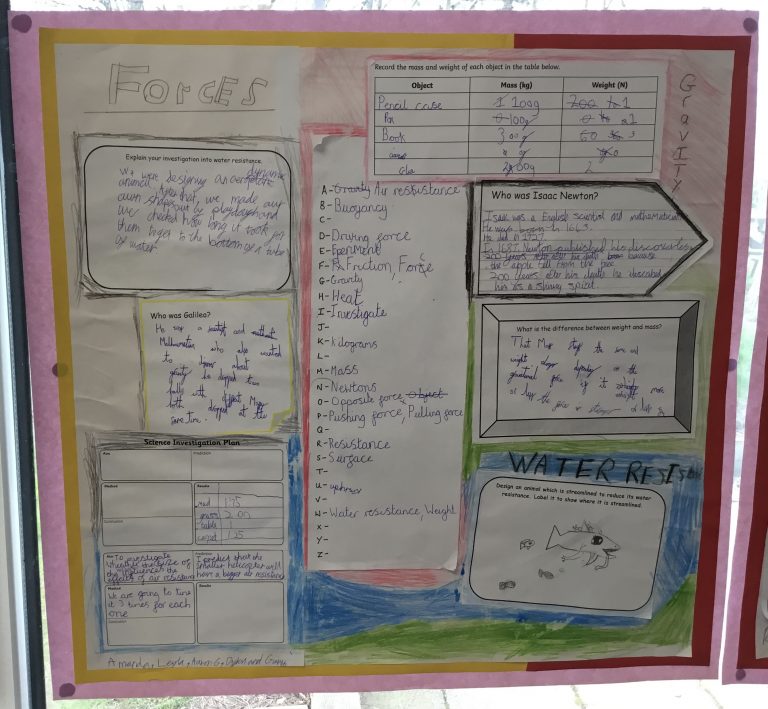 Forces
Record the mass and weight of each object in the table below.
Object Mass (kg) Weight (N)
Pencil case 100g 1
100g
Book 300g 3
Glue
GravITY
Explain your investigation into water resistance.
We were designing an
animal. After that, we made our
own shapes out of playdough and
we checked how long it took for
them to get to the bottom of a tube
of water
Who was Galileo?
He was a scientist and
Mathematician who also wanted
to about
gravity he dropped two
balls with different Mass
both dropped at the
same time.
Science Investigation Plan
Aim Prediction
Method Results
mud 1.75
grass 2.00
table 1
carpet 1.25
Conclusion
Aim To investigate
the size of
the influences the
effects of air resistance
Prediction
I predict that the
smaller helicopter will
have a bigger air resistance
Method Results
We are going to time
it 3 times for each
one
Conclusion
Amarda, Leyla, Aaron G, Dylan and
A-Gravity Air resistance
B-Buoyancy
C-
D-Driving force
E-Eperiment
F-Friction, Force
G-Gravity
H-Heat
I-Investigate
J-
K-kilograms
L-
M-Mass
N-Newtons
O-Opposite force, object
P-Pushing force, Pulling force
Q-
R-Resistance
S-Surface
T-
U-upthrust
V-
W-Water resistance, Weight
X-
Y-
Z-
Who was Isaac Newton?
Isaac was a English scientist and mathematician
He was born in 1643.
He died in 1727.
In 1687 Newton published his discoveries
200 years after his death because
the apple fell from the tree
200 years after his death he described
him as a shining spirit.
What is the difference between weight and mass?
That Mass stays the same and
weight changes depending on the
gravitational force if it more
or less the force is stronger or less
WATER RESIS
Design an animal which is streamlined to reduce its water
resistance. Label it to show where it is streamlined.